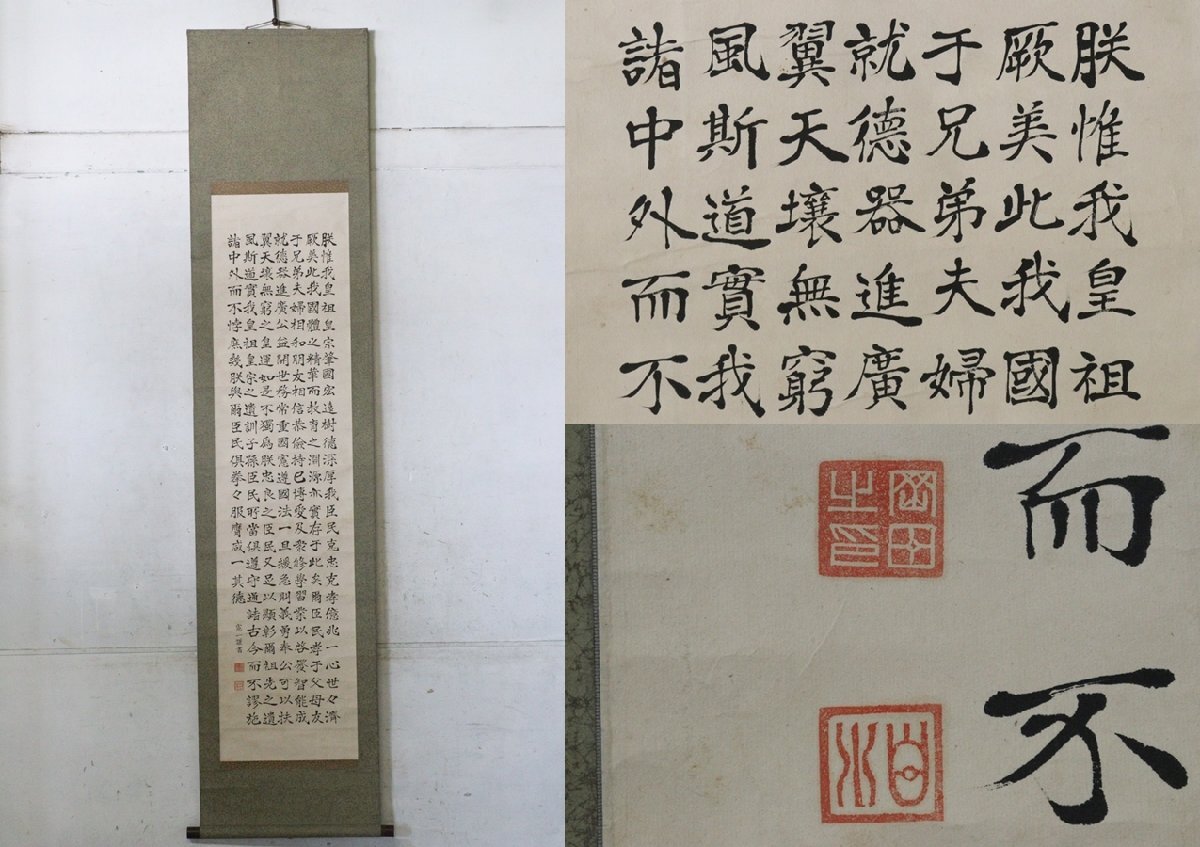 朕惟我皇祖皇宗肇國宏遠樹德深厚我臣民克忠克孝億兆一心世々濟
厥美此我國體之精華而敎育之淵源亦實存于此矣爾臣民孝于父母友
于兄弟夫婦相和朋友相信恭儉持己博愛及衆修學習業以啓發智能成
就德器進廣公益開世務常重國憲遵國法一旦緩急則義勇奉公可以扶
翼天壤無窮之皇運如是不獨爲朕忠良之臣民又足以顯彰爾祖先之遺
風斯道實我皇祖皇宗之遺訓子孫臣民所當俱遵守通諸古今而不謬施
諸中外而不悖庶幾朕與爾臣民俱拳々服膺咸一其德
朕惟我皇祖
厥美此我國
于兄弟夫婦
就德器進廣
翼天壤無窮
風斯道實我
諸中外而不
而不
岡田之印